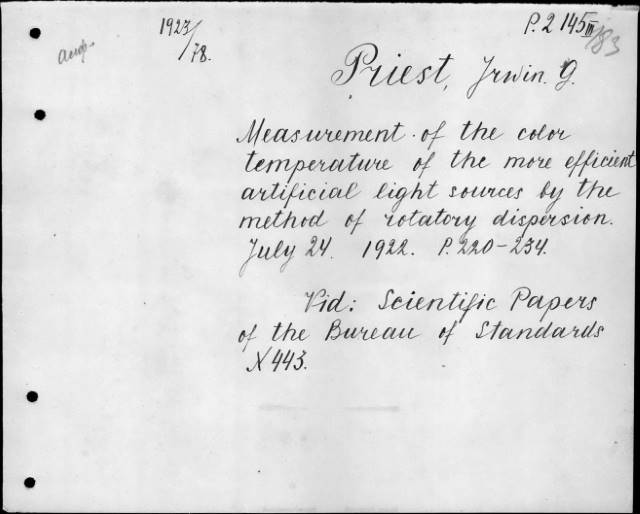 1923/78.
P. 2 145 III/83
Priest, Irwin. G.
Measurement of the color
temperature of the more efficient
artificial light sources by the
method of rotatory dispersion.
July 24. 1922. P. 220-234.
Vid: Scientific Papers
of the Bureau of Standards
N 443.